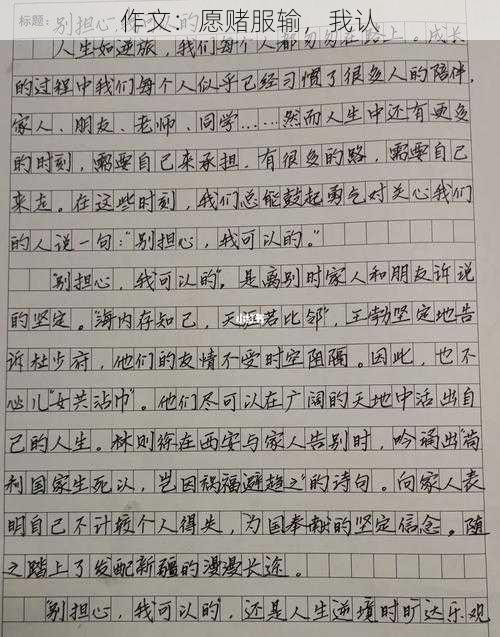 作文：愿赌服输，我认
标题：别担心
人生如逆旅，我们每个人都匆匆在路上。成长
的过程中我们每个人似乎已经习惯了很多人的陪伴，
家人、朋友、老师、同学……然而人生中还有更多
的时刻，需要自己来承担，有很多的路，需要自己
来走。在这些时刻，我们总能鼓起勇气对关心我们
的人说一句："别担心，我可以的。"
"别担心，我可以的"，是离别时家人和朋友诉说
的坚定。"海内存知己，天涯若比邻"，王勃坚定地告
诉杜少府，他们的友情不受时空阻隔。因此，也不
必儿"女共沾巾"。他们尽可以在广阔的天地中活出自
己的人生。林则徐在西安与家人告别时，吟诵出"苟
利国家生死以，岂因祸福避趋之"的诗句。向家人表
明自己不计较个人得失，为国奉献的坚定信念。随
之踏上了发配新疆的漫漫长途。
"别担心，我可以的"，还是人生逆境时旷达乐观